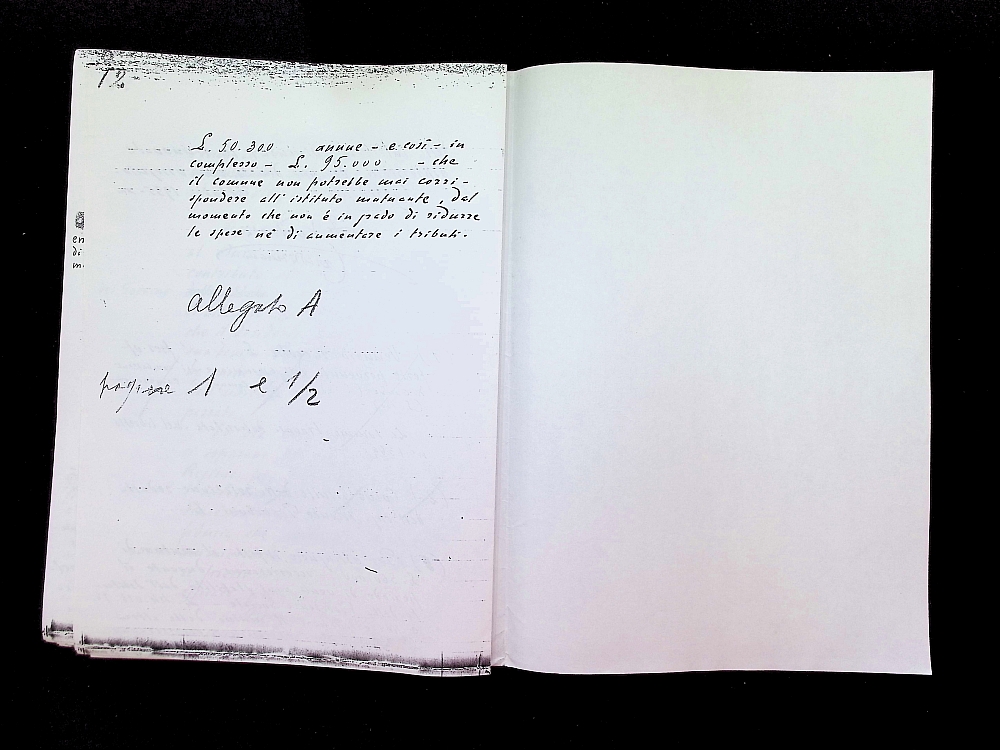 12
£. 50.300 annue - e così - in
complesso - £. 95.000 - che
il comune non potrebbe mai corri-
spondere all'istituto mutuante, dal
momento che non è in grado di ridurre
le spese nè di aumentare i tributi.
en
di
m.
allegato A
pagine 1 e 1/2